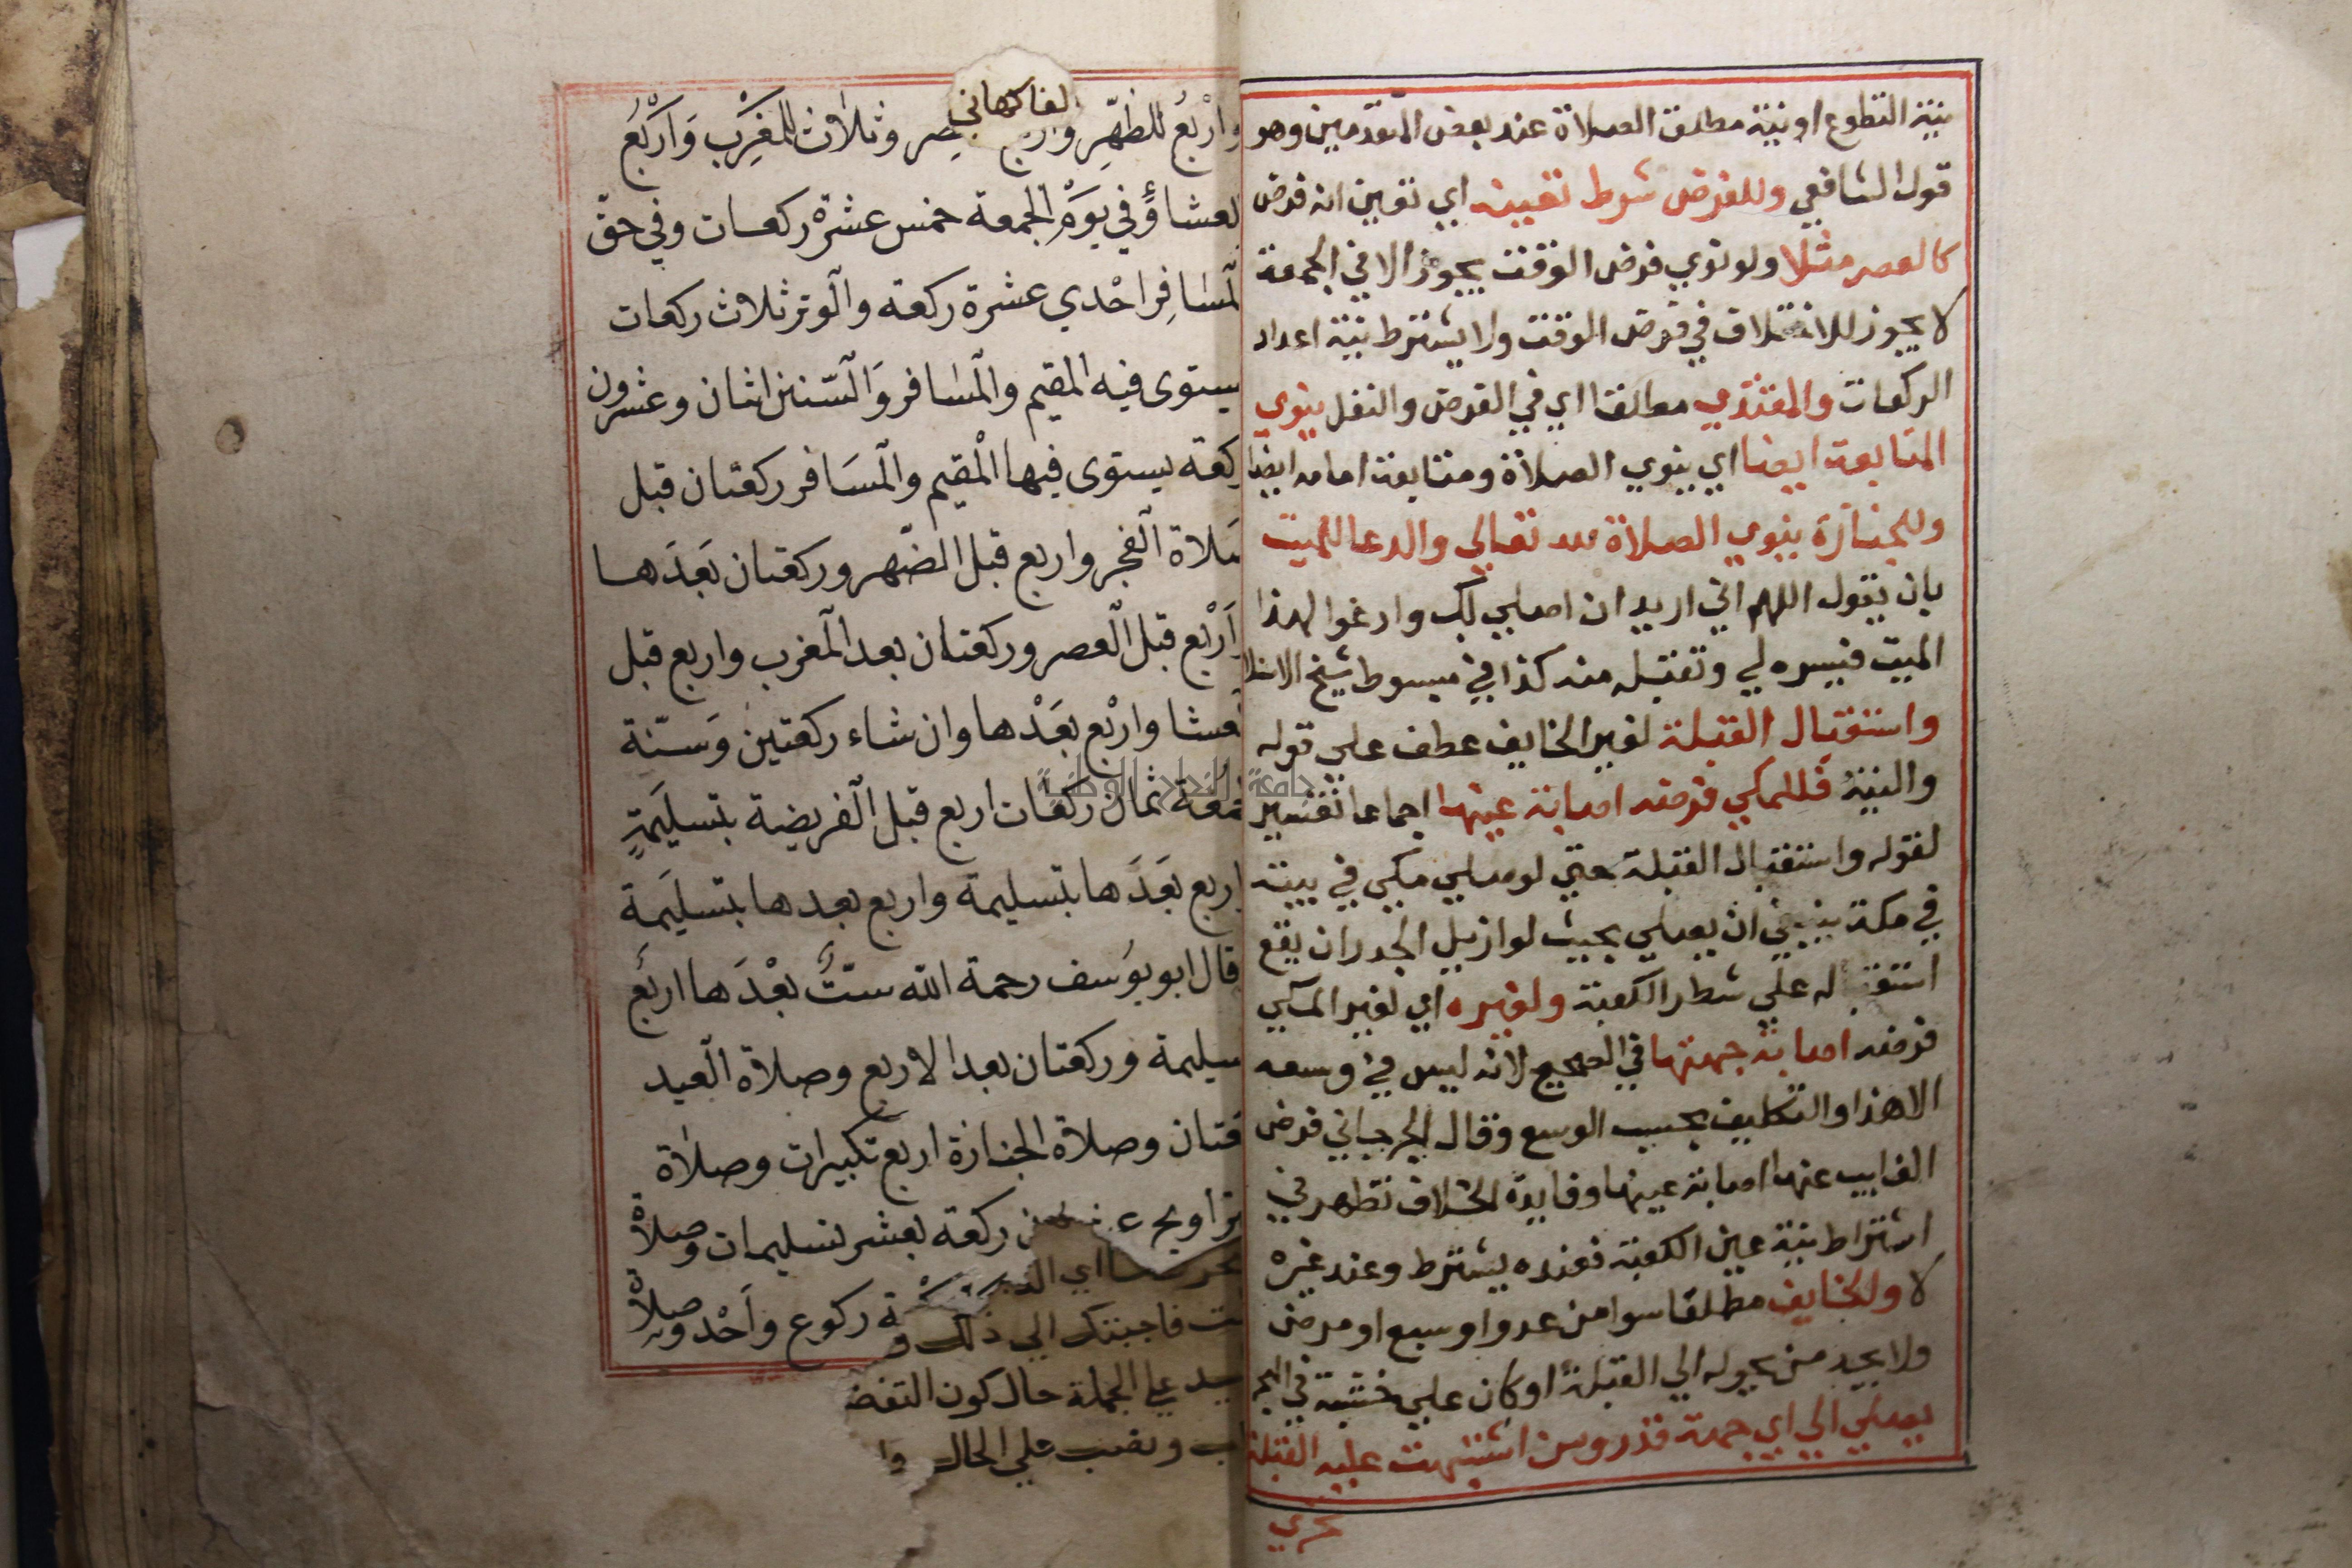 بنية التطوع او بنية مطلق الصلاة عند بعض المتقدمين وهو
قول الشافعي وللفرض شرط تعيينه اي تعيين انه فرض
كالعصر مثلا ولو نوي فرض الوقت يجوز الا في الجمعة
لا يجوز للاختلاف في فرض الوقت ولا يشترط بنية اعداد
الركعات والمقتدي مطلقا اي في الفرض والنفل ينوي
المتابعة ايضا اي ينوي الصلاة ومتابعة امامه ايضا
وللجنازة ينوي الصلاة لله تعالي والدعا للميت
بان يقول اللهم اني اريد ان اصلي لك وادعوا لهذا
الميت فيسره لي وتقبله منه كذا في مبسوط شيخ الاسلا
واستقبال القبلة لغير الخايف عطف علي قوله
والنية فللمكي فرضه اصابة عينها اجماعا تفسير
لقوله واستقبال القبلة حتي لو صلي مكي في بيته
في مكة ينبغي ان يصلي بحيث لو ازيل الجدران يقع
استقباله علي شطر الكعبة ولغيره اي لغير المكي
فرضه اصابة جهتها في الصحيح لانه ليس في وسعه
الا هذا والتكليف بحسب الوسع وقال الجرجاني فرض
الغايب عنها اصابة عينها وفايدة الخلاف تظهر في
اشتراط نية عين الكعبة فعنده يشترط وعند غيره
لا وللخايف مطلقا سوا من عدو او سبع او مرض
ولا يجد من يحوله الي القبلة او كان علي خشبة في البحر
يصلي الي اي جهة قدر ومن اشتبهت عليه القبلة
تحري
الفاكهاني
وارْبعُ للظهِّرِ وثلاث للمغْرِب وَارْبَعُ
لعشاؤ في يوَمِ الجمعة خمس عشرة ركعات وفي حقّ
لمسَافِر احْدي عشرة ركعة والوتر ثلاث ركعات
يستوى فيه المقيم والمسافر وَالسّنن اثنان وعشرون
ركعة يستوى فيها المْقيم والمسَافر ركعتان قبل
صَلاة الفجر واربع قبل الضّهر وركعتان بَعَدَها
وَارْبع قبل العصر وركعتان بعد المغرب واربع قبل
لعشا وارْبع بعَدْها وان شاء ركعتين وَسنّة
لجمُعة ثمان ركعَات اربع قبل الفريضة بتسليَمةٍ
واربع بعَدَها بتسليمة واربع بعدها بتسليَمة
قال ابو يوُسف رحمة الله ستٌّ بعْدَها اربَعُ
بتسليمة وركعتان بعد الاربع وصلاة العيد
ركعتان وصلاة الجنازة اربع تكبيرات وصلاة
لتراويح ركعة بعشر تسليمات وصلاة
ركوع واَحْد وصلاة
فاجبتك الي ذلك
علي الجملة حال كون التفض
ونصب علي الحال
جامعة النجاح الوطنية